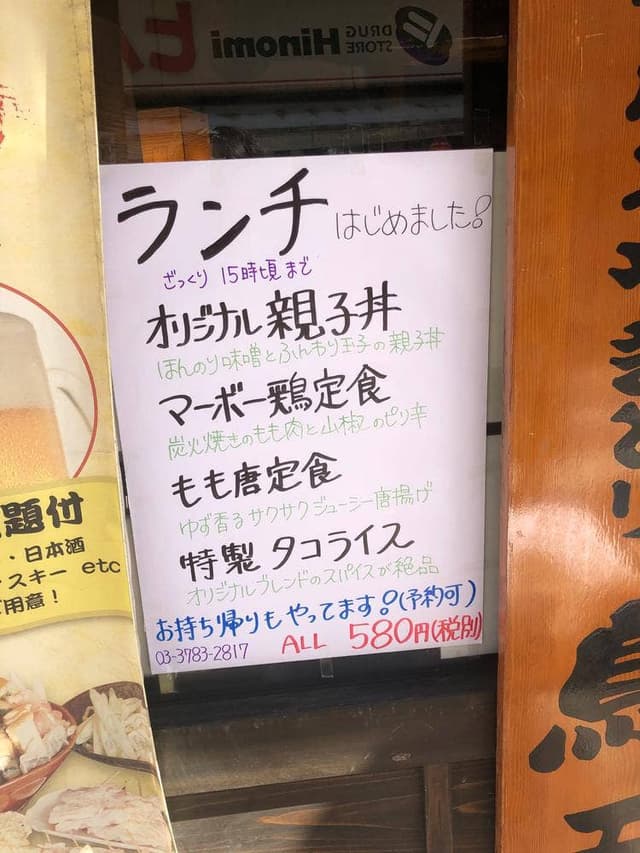 DRUG STORE Hinomi
ランチ はじめました!
ざっくり 15時頃まで
オリジナル親子丼
ほんのり味噌とふんわり玉子の親子丼
マーボー鶏定食
炭火焼きのもも肉と山椒のピリ辛
もも唐定食
ゆず香るサクサクジューシー唐揚げ
特製タコライス
オリジナルブレンドのスパイスが絶品
お持ち帰りもやってます!(予約可)
03-3783-2817
ALL 580円(税別)
題付
・日本酒
スキー etc
用意!
やきとり
鳥